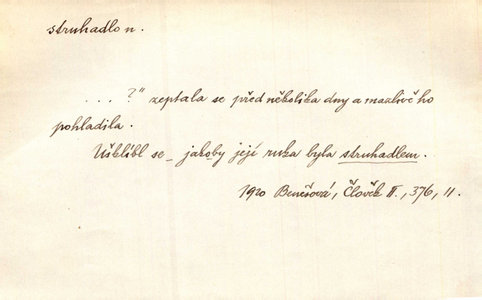 struhadlo n.
. . . ?" zeptala se před několika dny a mazlivě ho
pohladila.
Ušklíbl se – jakoby její ruka byla struhadlem.
1920 Benešová, Člověk II., 376, 11.